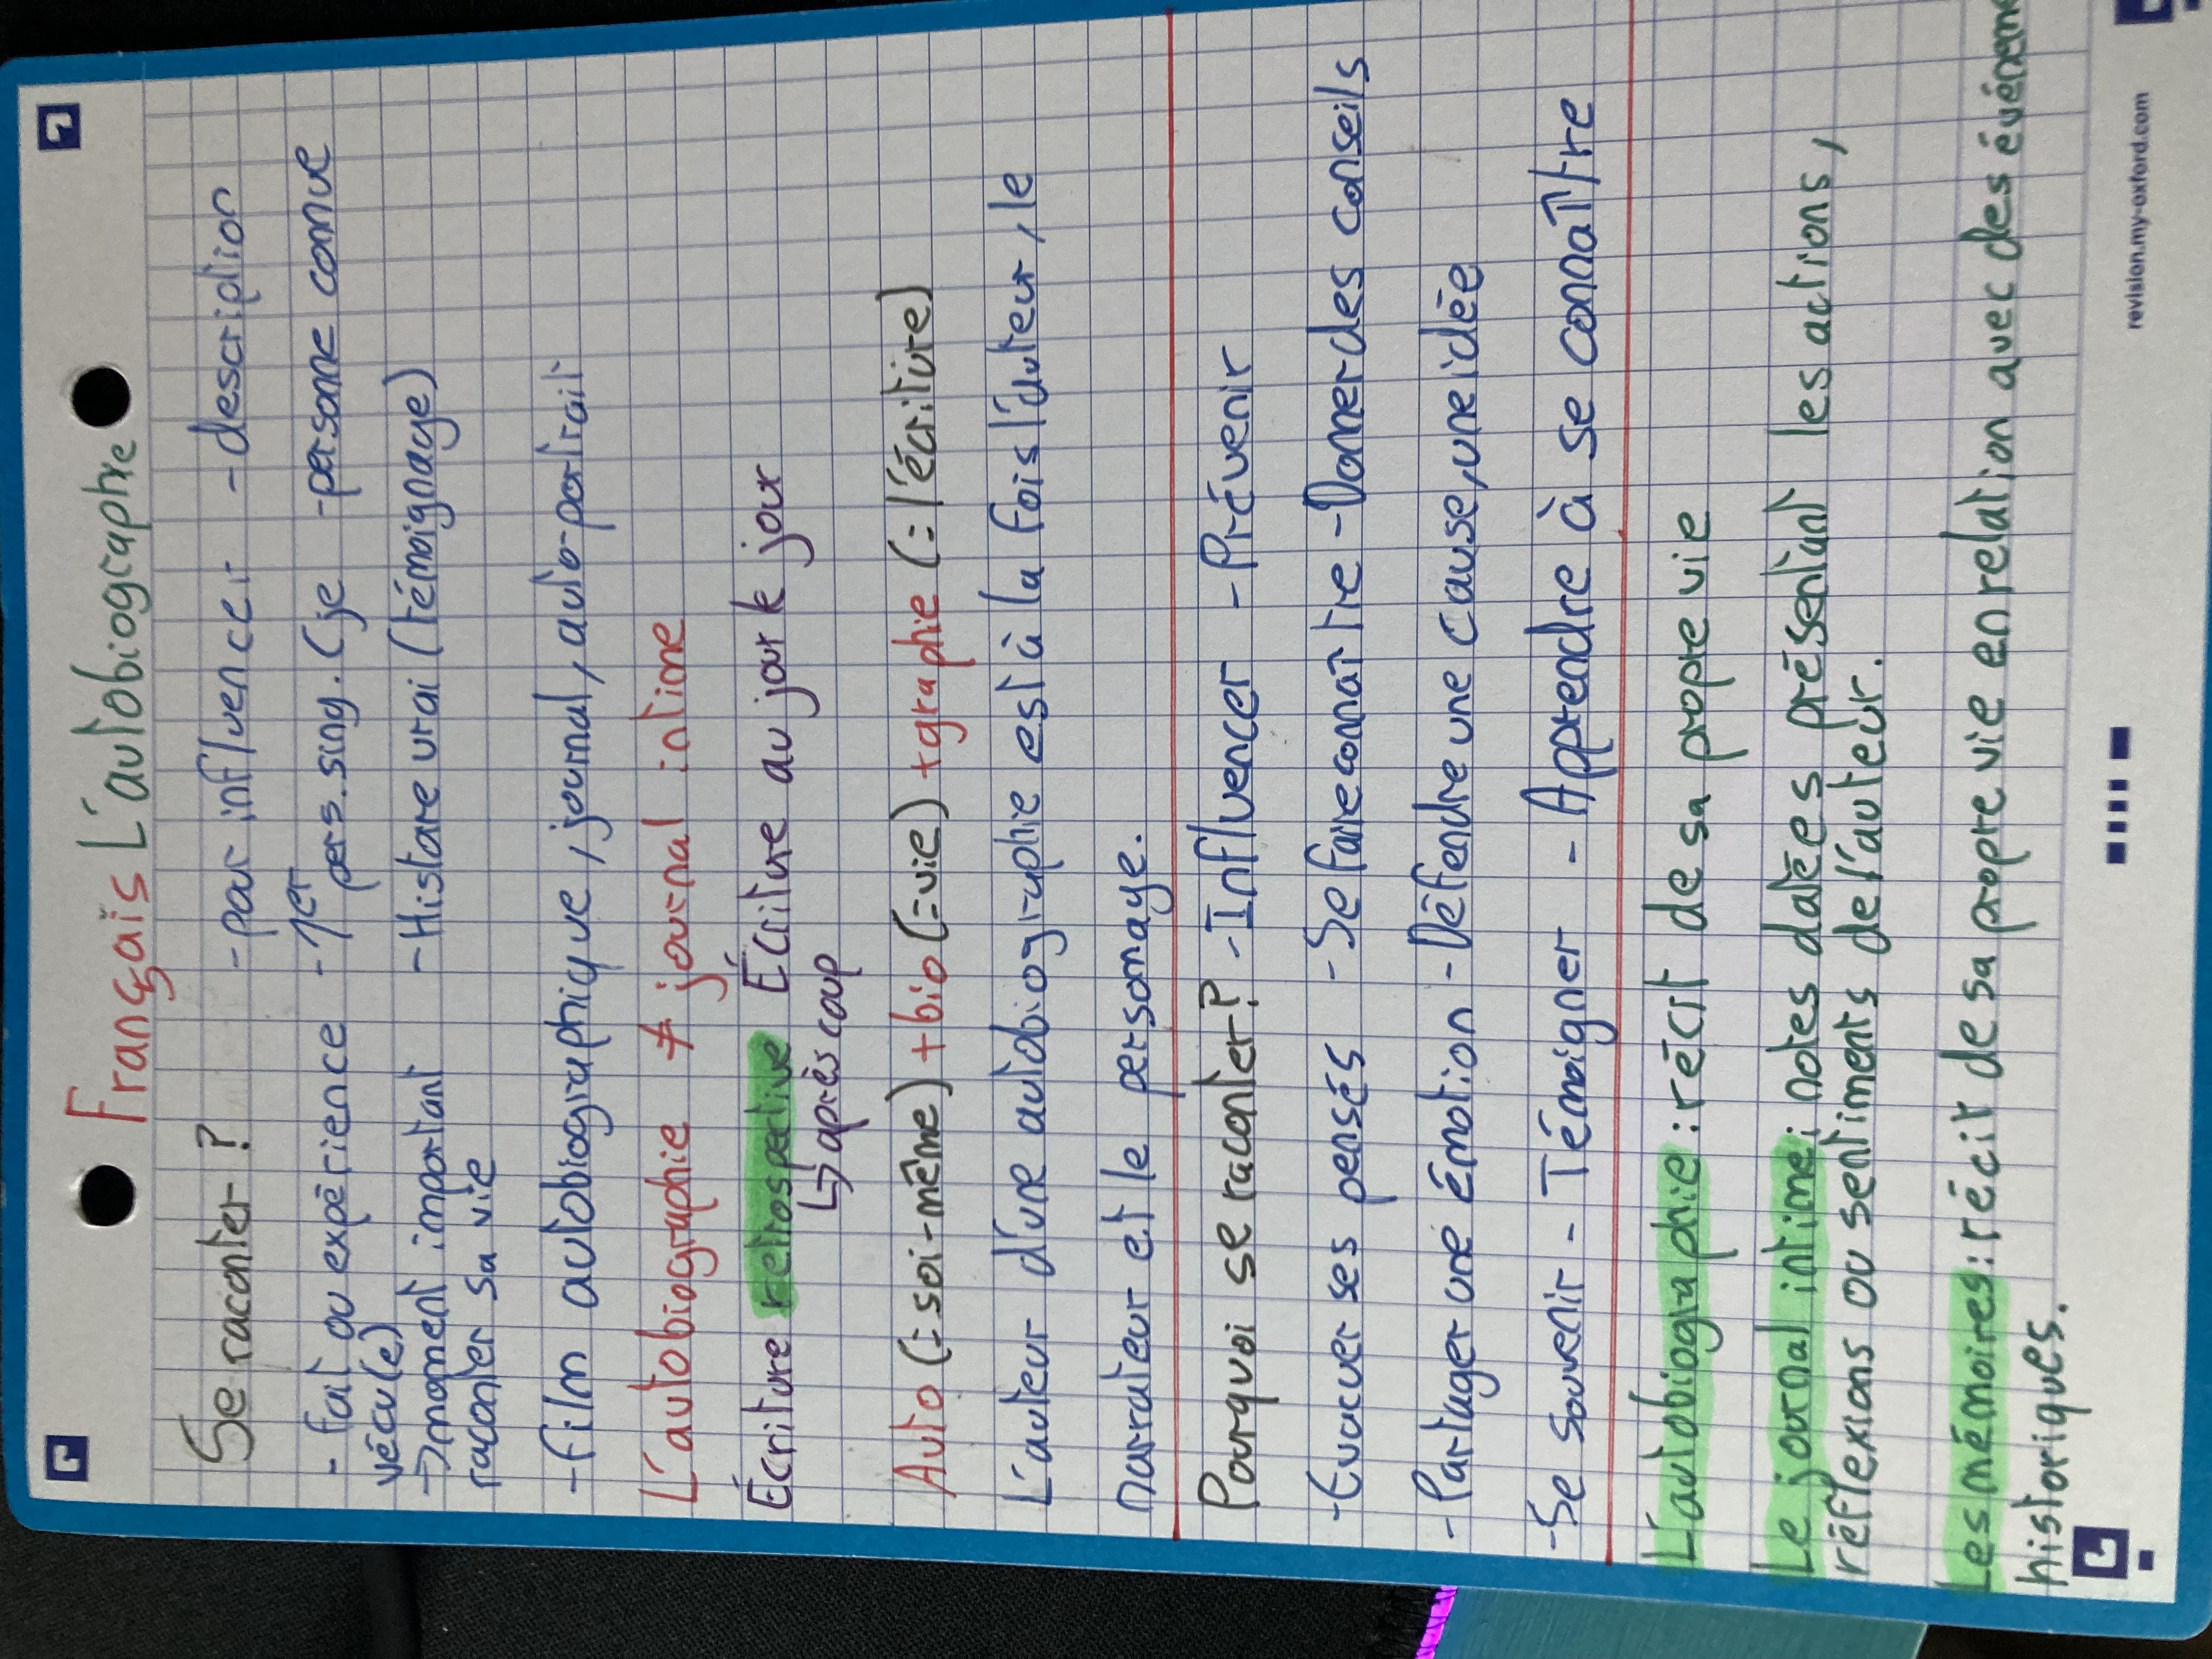 Français L'autobiographie
Se raconter ? - pour influencer - description
- fait ou expérience - 1er pers. sing. (je - personne connue
vécu(e)
→ moment important - Histoire vrai (témoignage)
raconter sa vie
- film autobiographique, journal, auto-portrait
L'autobiographie ≠ journal intime
Écriture retrospective Écriture au jour le jour
↳ après coup
Auto (= soi-même) + bio (= vie) + graphie (= l'écriture)
L'auteur d'une autobiographie est à la fois l'auteur, le
narrateur et le personnage.
Pourquoi se raconter? - Influencer - Prévenir
- Évacuer ses pensés - Se faire connaître - Donner des conseils
- Partager une émotion - Défendre une cause, une idée
- Se souvenir - Témoigner - Apprendre à se connaître
L'autobiographie : récit de sa propre vie
Le journal intime : notes datées présentant les actions,
réflexions ou sentiments de l'auteur.
Les mémoires : récit de sa propre vie en relation avec des événeme
historiques.
revision.my-oxford.com